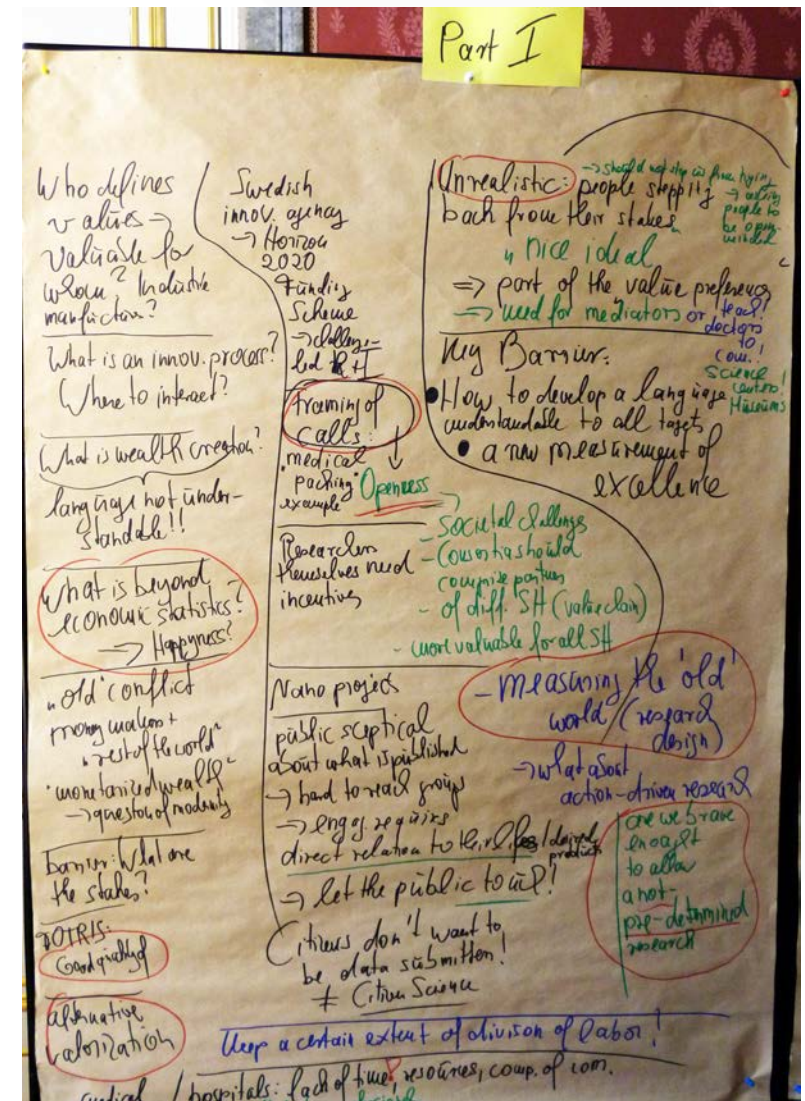 Part I
Who defines
values →
valuable for
whom? Industrie
manufacture?
What is an innov. process?
Where to interact?
What is wealth creation?
language not under-
standable!!
What is beyond
economic statistics?
→ Happyness?
"old" conflict
money makers +
"rest of the world"
"monetarized wealth"
→ question of modernity
barrier: What are
the stakes?
Good quality of
alternative
valorization
Swedish
innov. agency
→ Horizon
2020
Funding
Scheme
→ challenge-
led R+I
framing of
calls:
"medical
packing"
example
Openness
Researchers
themselves need
incentives
- Societal challenges
- Consortia should
comprise partners
- of diff. SH (value chain)
- more valuable for all SH
Nano project
public sceptical
about what is published
→ hard to reach groups
→ engag. requires
direct relation to their / desired
products
→ let the public
Citizens don't want to
be data submitten!
≠ Citizen Science
Keep a certain extent of divison of labor!
Unrealistic: people stepping
back from their stakes
→ should not stop us from trying
→ asking
people to
be open-
minded
"nice ideal
⇒ part of the value preferences
→ need for mediators or teach!
doctors
to
com.!
Science
centers!
Museums
Key Barrier:
• How to develop a language
understandable to all targets
• a new measurement of
excellence
- measuring the 'old'
world (research
design)
→ what about
action-driven research
are we brave
enough
to allow
a not-
pre-determined
research
medical / hospitals: lack of time, resources, comp. of com.